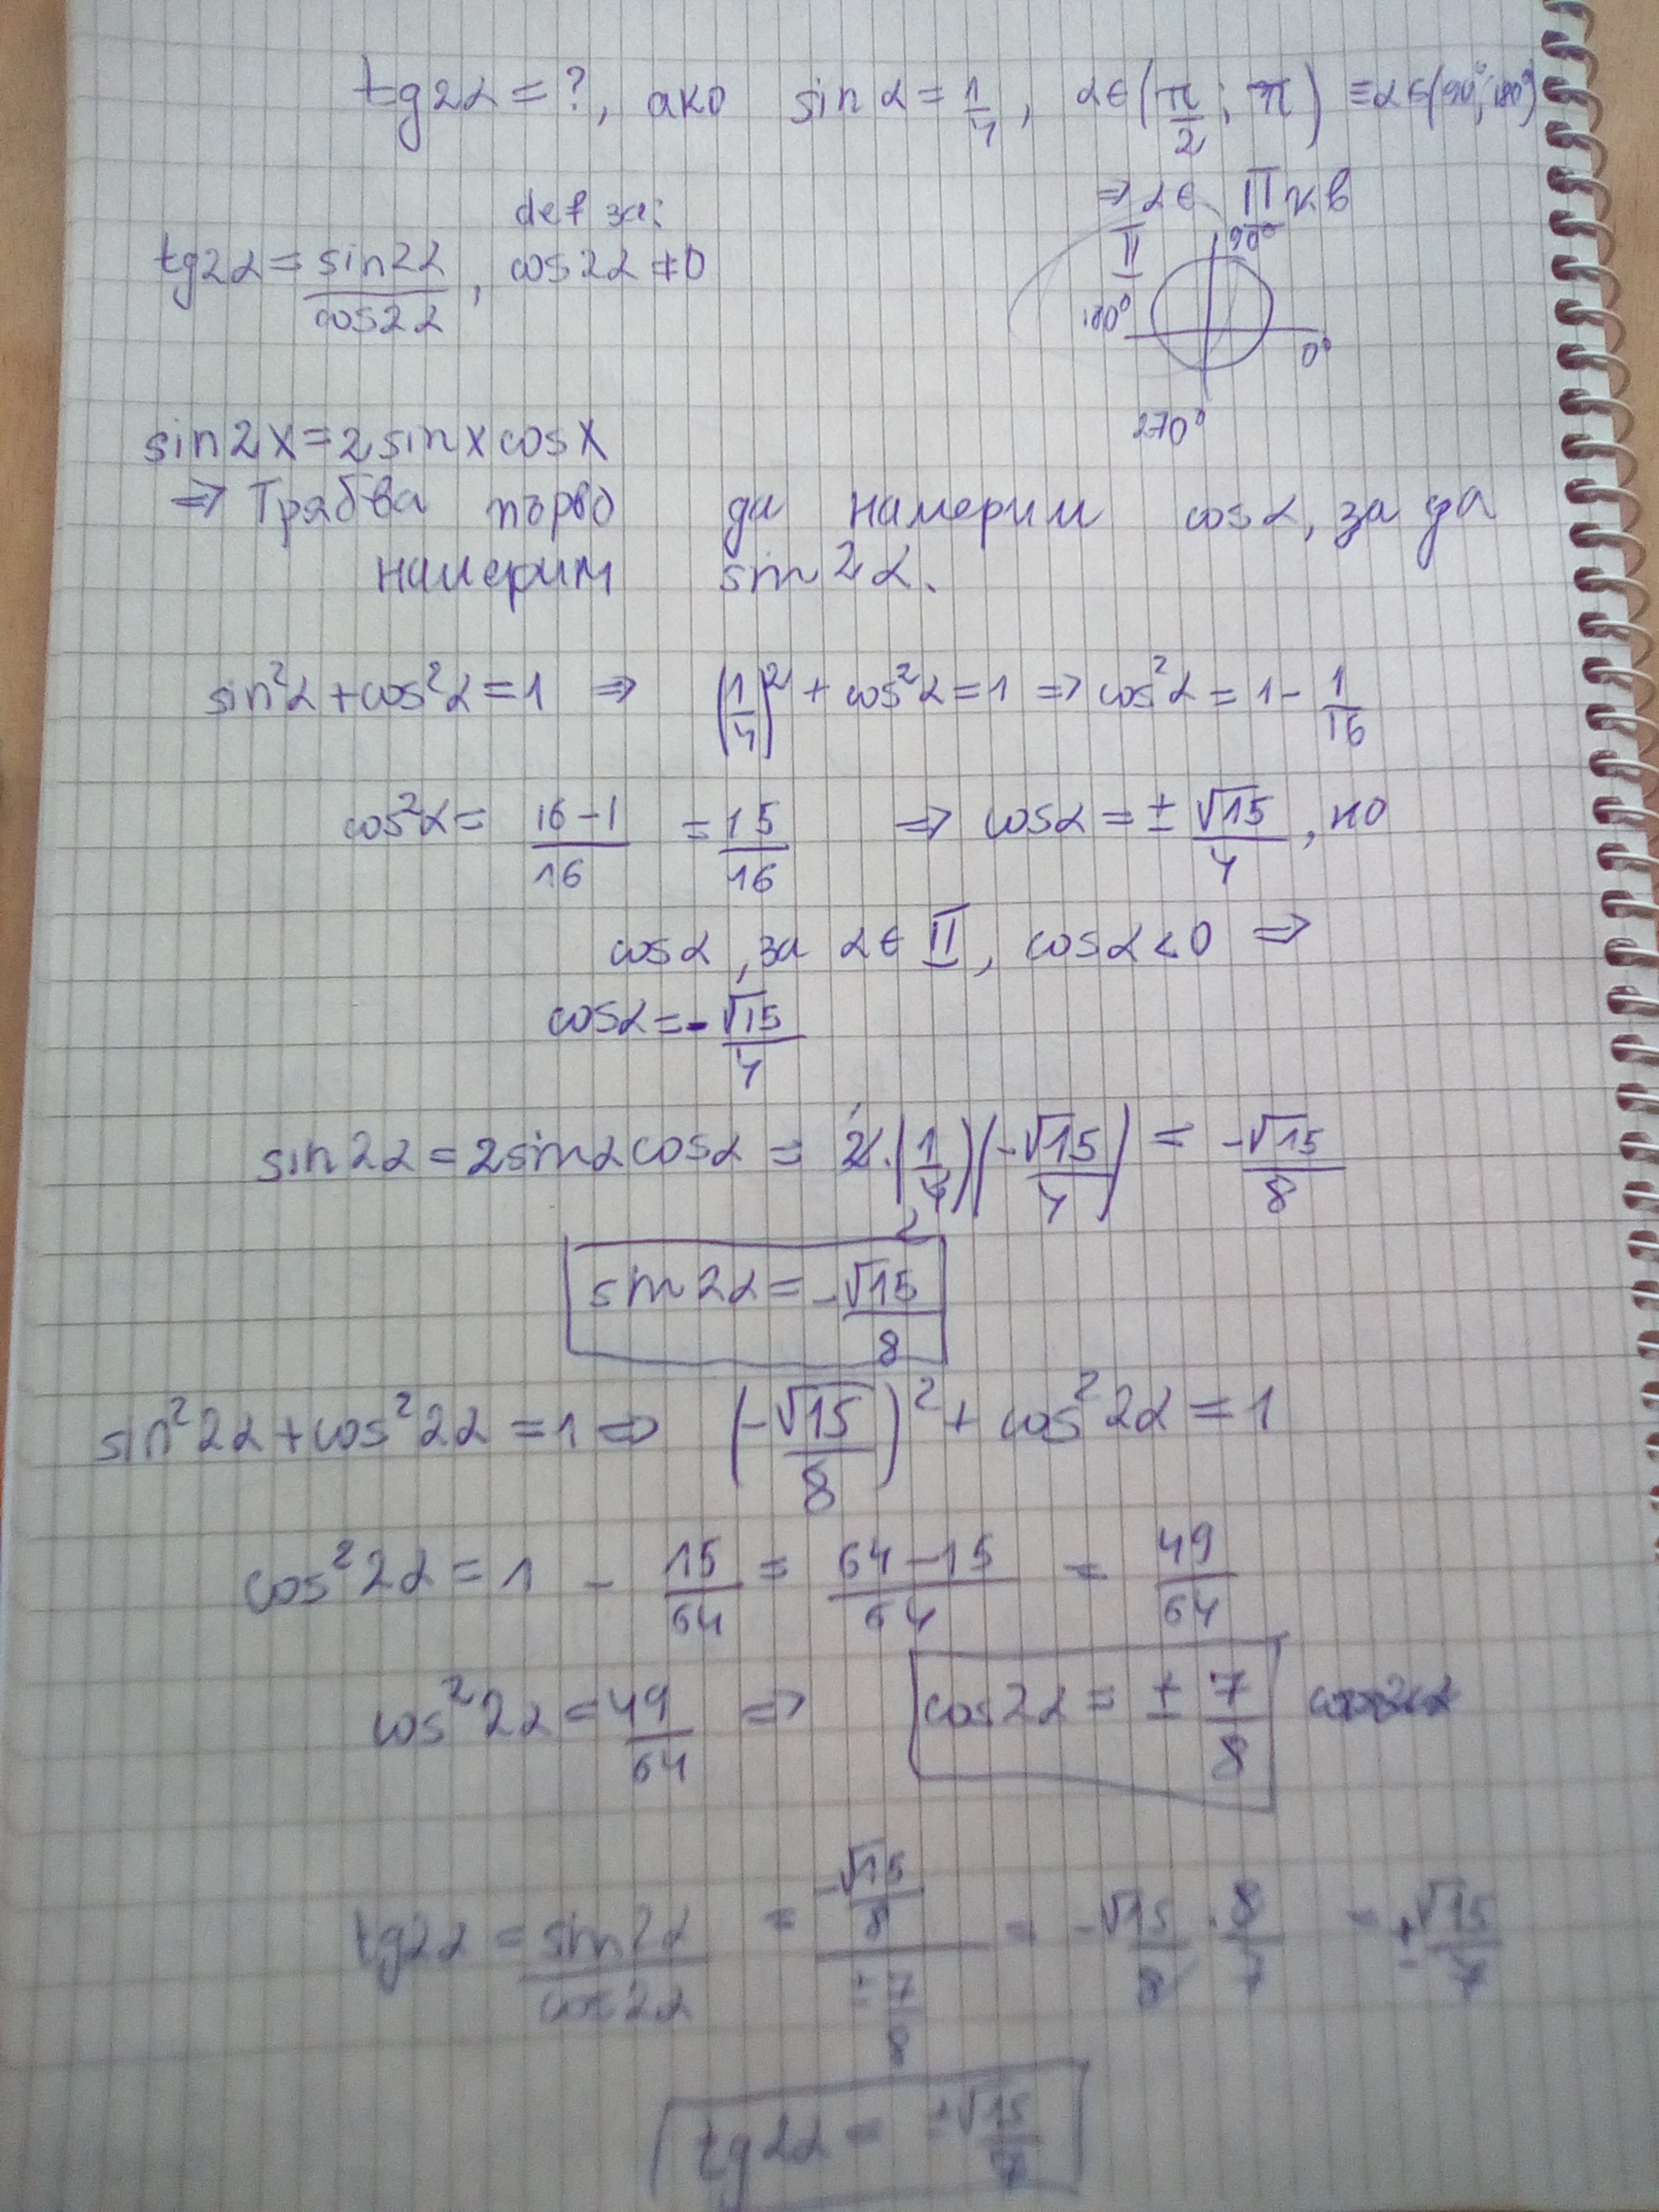 tg2α = ?, ако sin α = 1/4, α∈(π/2; π) ≡ α∈(90°; 180°)
⇒ α∈ II кв
def за:
tg2α = sin2α/cos2α, cos2α ≠ 0
90°
II
180°
0°
270°
sin2x = 2sinxcosx
⇒ Трябва първо да намерим cosα, за да
намерим sin2α.
sin²α + cos²α = 1 ⇒ (1/4)² + cos²α = 1 ⇒ cos²α = 1 - 1/16
cos²α = 16-1/16 = 15/16 ⇒ cosα = ± √15/4, но
cosα, за α∈ II, cosα < 0 ⇒
cosα = - √15/4
sin2α = 2sinαcosα = 2.(1/4)(-√15/4) = -√15/8
sin2α = -√15/8
sin²2α + cos²2α = 1 ⇒ (-√15/8)² + cos²2α = 1
cos²2α = 1 - 15/64 = 64-15/64 = 49/64
cos²2α = 49/64 ⇒ cos2α = ± 7/8
tg2α = sin2α/cos2α = -√15/8/±7/8 = -√15/8 . 8/7 = ±√15/7
tg2α = ±√15/7